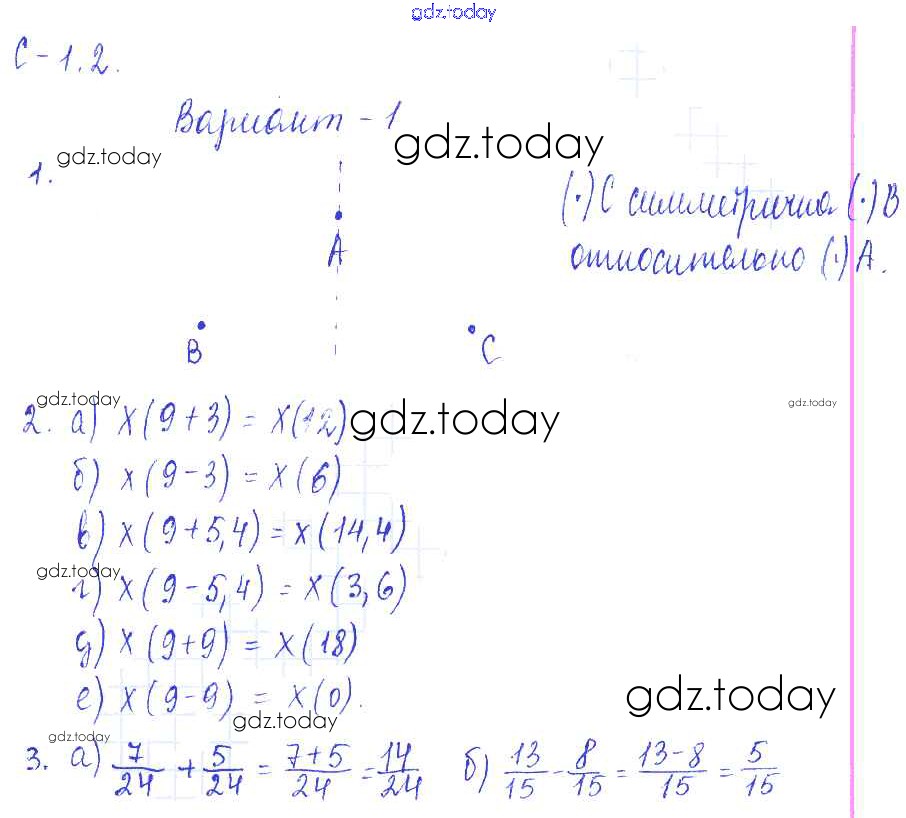 gdz.today
С-1.2.
Вариант-1
gdz.today
gdz.today
1.
(·)С симметрична (·)В
относительно (·)А.
А
В
С
gdz.today
2. а) х(9+3) = х(12)
gdz.today
gdz.today
б) х(9-3) = х(6)
в) х(9+5,4) = х(14,4)
gdz.today
г) х(9-5,4) = х(3,6)
д) х(9+9) = х(18)
е) х(9-9) = х(0).
gdz.today
gdz.today
gdz.today
3. а) 7/24 + 5/24 = 7+5/24 = 14/24 б) 13/15 - 8/15 = 13-8/15 = 5/15